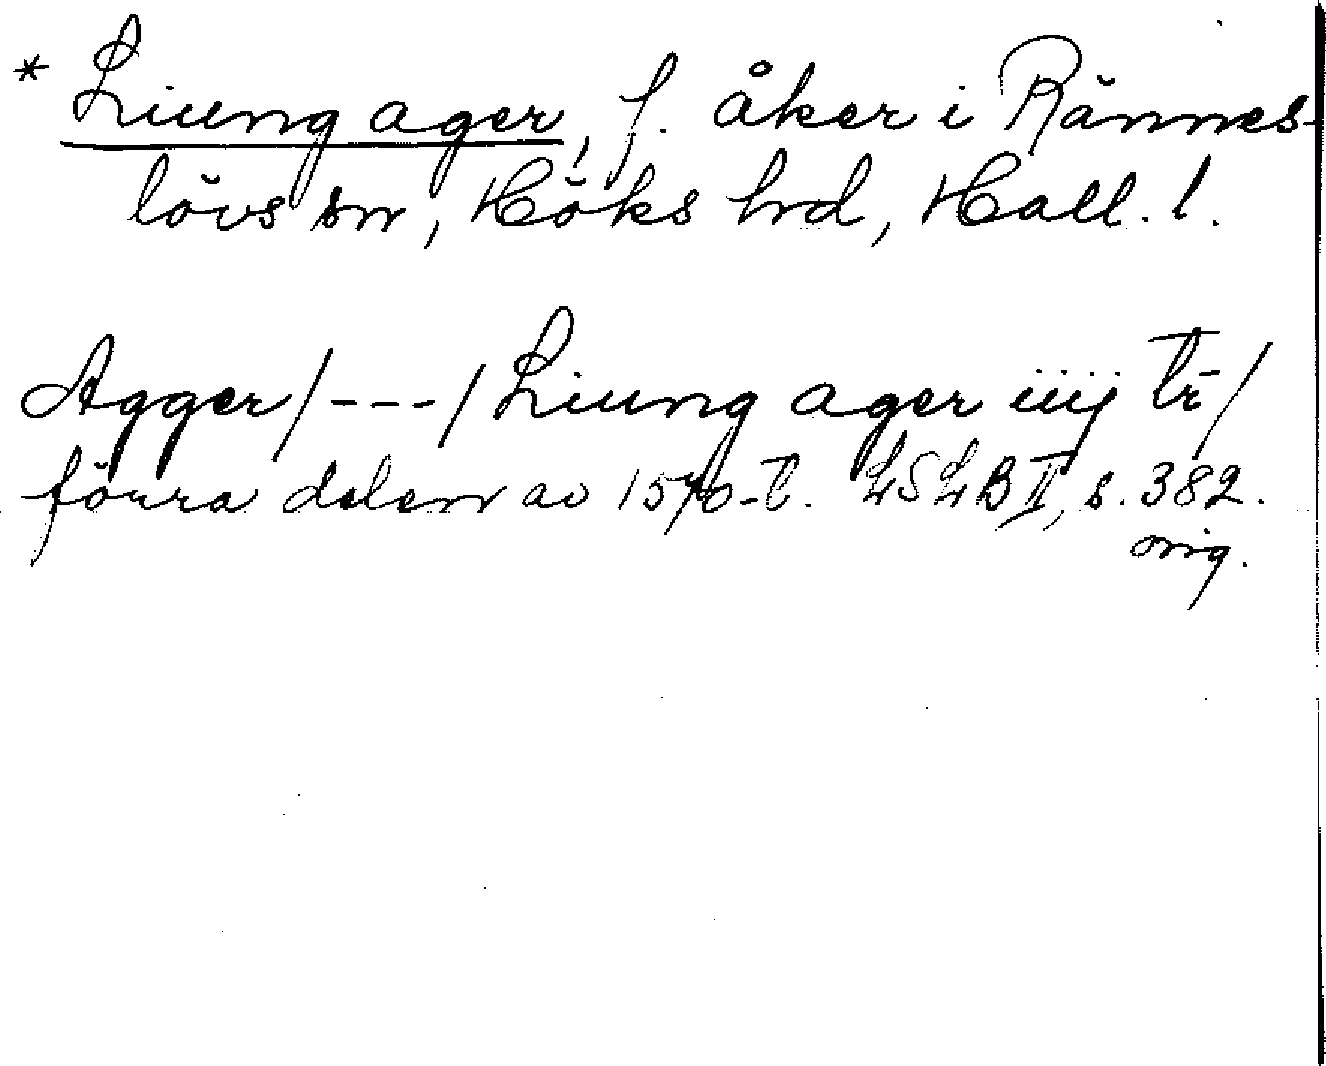 * Liung ager, f. åker i Rännes-
lövs sn, Höks hrd, Hall. l.
Agger/---/Liung ager iiij tr̄/
förra delen av 1570-t. LSLB II, s. 382.
orig.